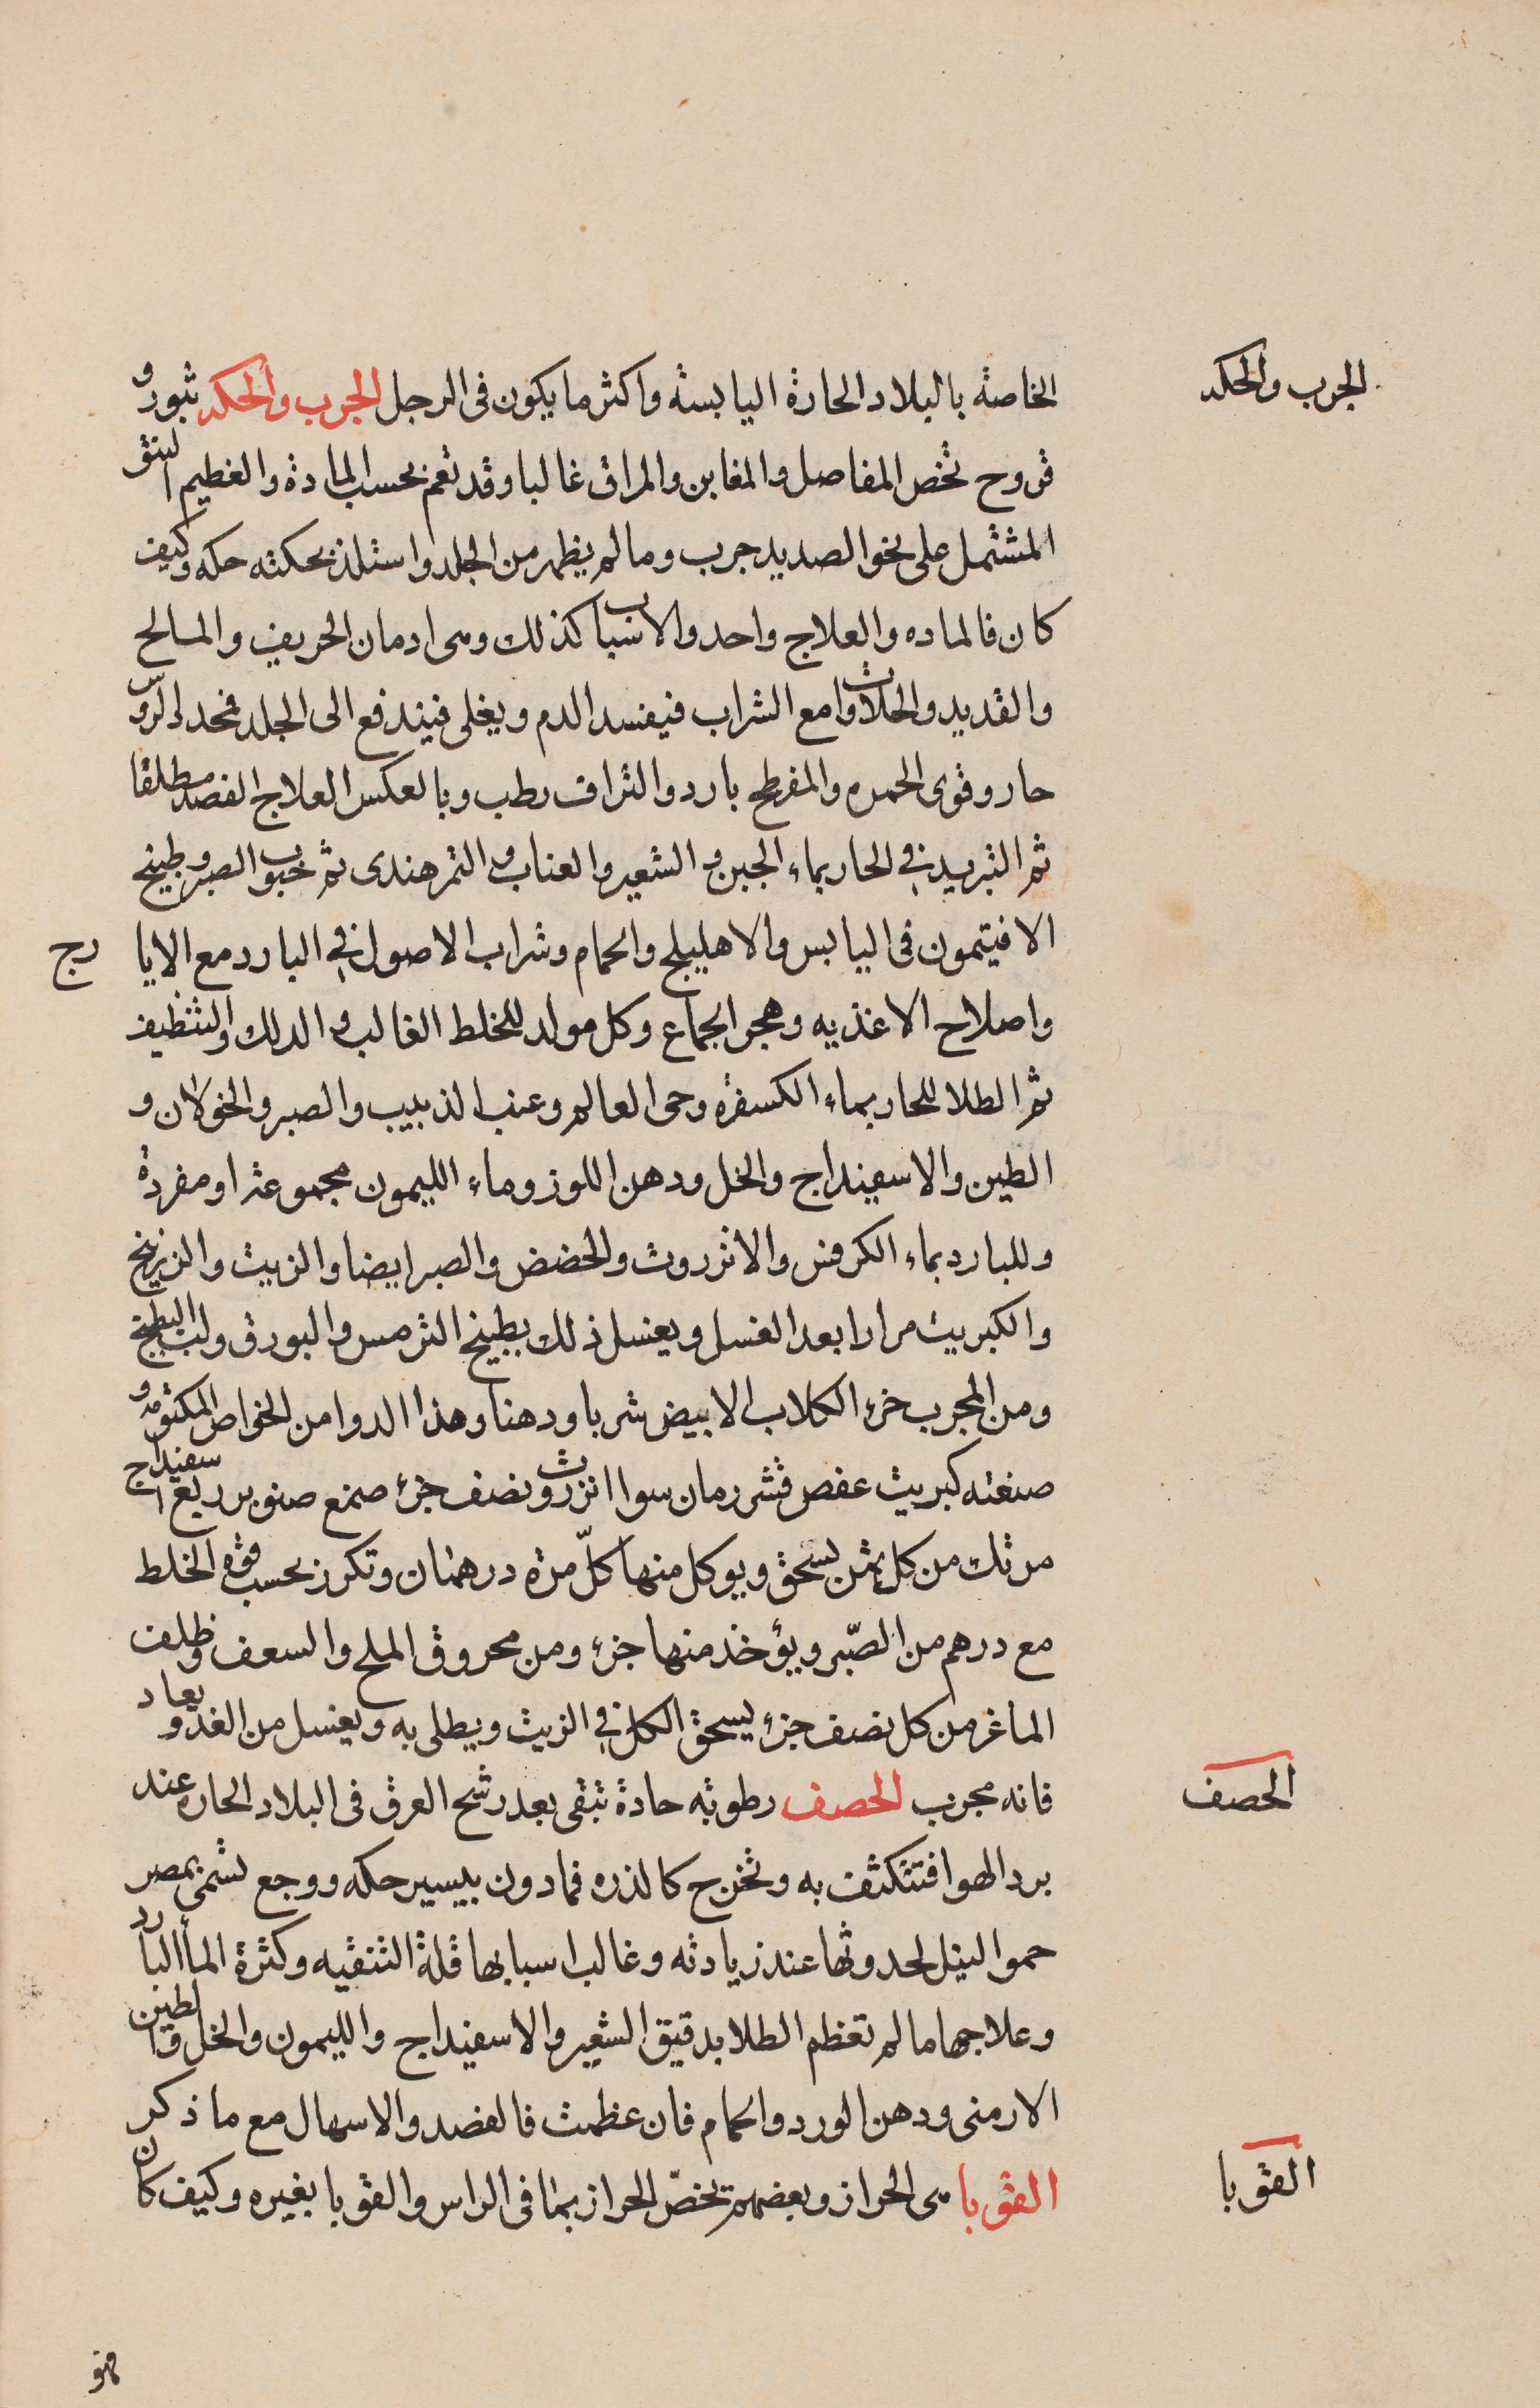 الجرب والحكه
الخاصة بالبلاد الحارة اليابسة واكثر ما يكون في الرجل الجرب والحكه بثور و
قروح تخص المفاصل والمغابن والمراق غالبا وقد تعم بحسب المادة والعظيم النتو
المشتمل على نحو الصديد جرب وما لم يظهر من الجلد واستلذ بحكته حكه وكيف
كان فالماده والعلاج واحد والاسباب كذلك وهى ادمان الحريف والمالح
والقديد والحلاوات مع الشراب فيفسد الدم ويغلى فيندفع الى الجلد فمحدد الروس
حار وقوى الحمره والمفرطح بارد والنزاف رطب وبالعكس العلاج الفصد مطلقا
ثم التبريد في الحار بماء الجبن والشعير والعناب والتمر هندى ثم حبوب الصبر وطبيخ
الافيتمون فى اليابس والاهليلج والحمام وشراب الاصول في البارد مع الايا رج
واصلاح الاغذيه وهجر الجماع وكل مولد للخلط الغالب والدلك والتنظيف
ثم الطلا للحار بماء الكسفره وحى العالم وعنب الذبيب والصبر والخولان و
الطين والاسفيداج والخل ودهن اللوز وماء الليمون مجموعة او مفردة
وللبارد بماء الكرفس والانزروت والحضض والصبر ايضا والزيت والزرنيخ
والكبريت مرارا بعد الغسل ويغسل ذلك بطبيخ الترمس والبورق ولب البطيخ
ومن المجرب خرء الكلاب الابيض شربا ودهنا وهذا الدوا من الخواص المكتومه و
صنعته كبريت عفص قشر رمان سوا انزروت نصف جزء صمغ صنوبر ربع اسفيداج
مرتك من كل ثمن يسحق ويوكل منها كلّ مرة درهمان وتكرر بحسب قوة الخلط
مع درهم من الصّبر ويؤخذ منها جزء ومن محروق الملح والسعف وظلف
الماعز من كل نصف جزء يسحق الكل في الزيت ويطلى به ويغسل من الغد ويعاد
فانه مجرب الحصف رطوبة حادة تبقى بعد رشح العرق فى البلاد الحاره عند
الحصف
برد الهوا فتتكثف به وتخرج كالذره فما دون بيسير حكه ووجع تسمى بمصر
حمو النيل لحدوثها عند زيادته وغالب اسبابها قلة التنقيه وكثرة الماأ البارد
وعلاجها ما لم تعظم الطلا بدقيق الشعير والاسفيداج والليمون والخل والطين
الارمنى ودهن الورد والحمام فان عظمت فالفصد والاسهال مع ما ذكر
القوبا هى الحزاز وبعضهم يخصّ الحزاز بما فى الراس والقوبا بغيره وكيف كان
القوبا